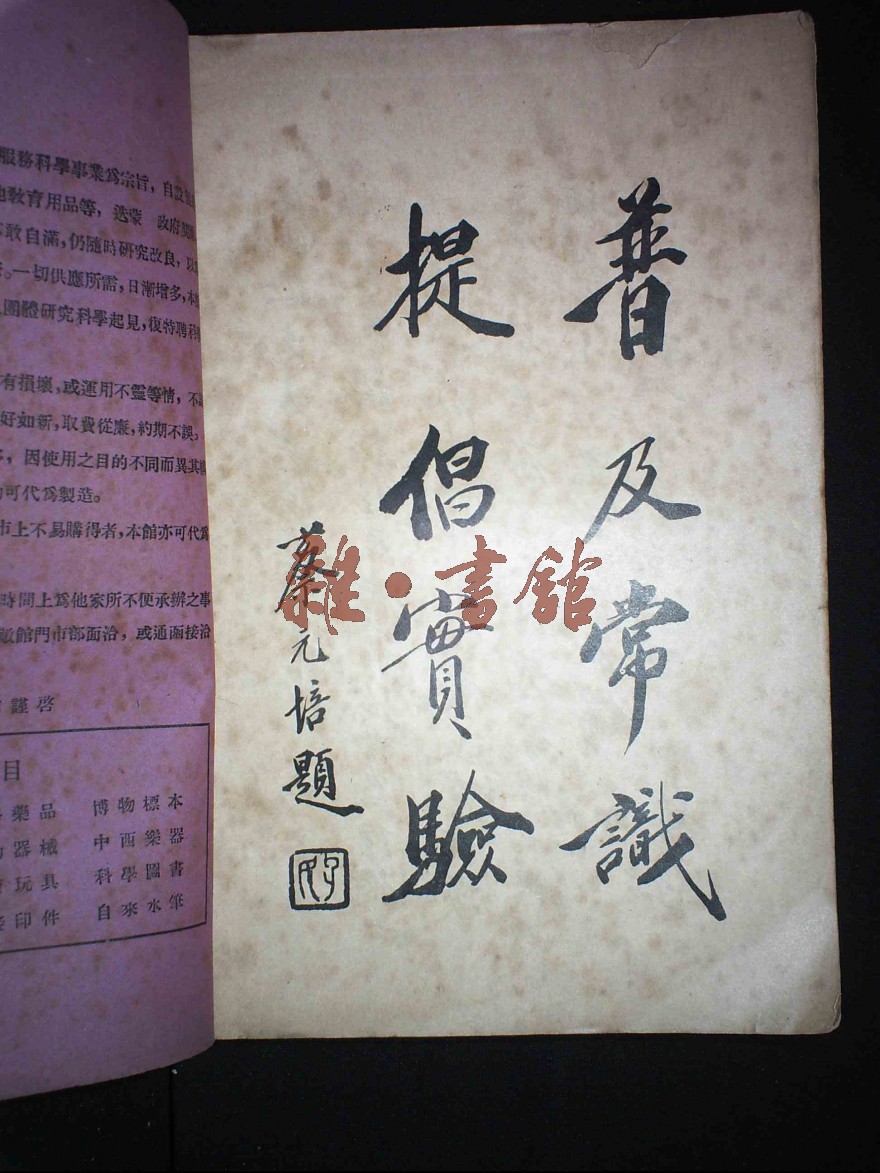 普及常識
提倡實驗
蔡元培題
孑民
雜·書館
服務科學事業爲宗旨，自設
教育用品等，迭蒙　政府
敢自滿，仍隨時研究改良，以
。一切供應所需，日漸增多，本
團體研究科學起見，復特聘科
有損壞，或運用不靈等情，不
好如新，取費從廉，約期不誤。
，因使用之目的不同而異其
可代爲製造。
市上不易購得者，本館亦可代爲
時間上爲他家所不便承辦之事
館門市部面洽，或通函接洽
謹啓
目
藥品　博物標本
器械　中西樂器
玩具　科學圖書
印件　自來水筆